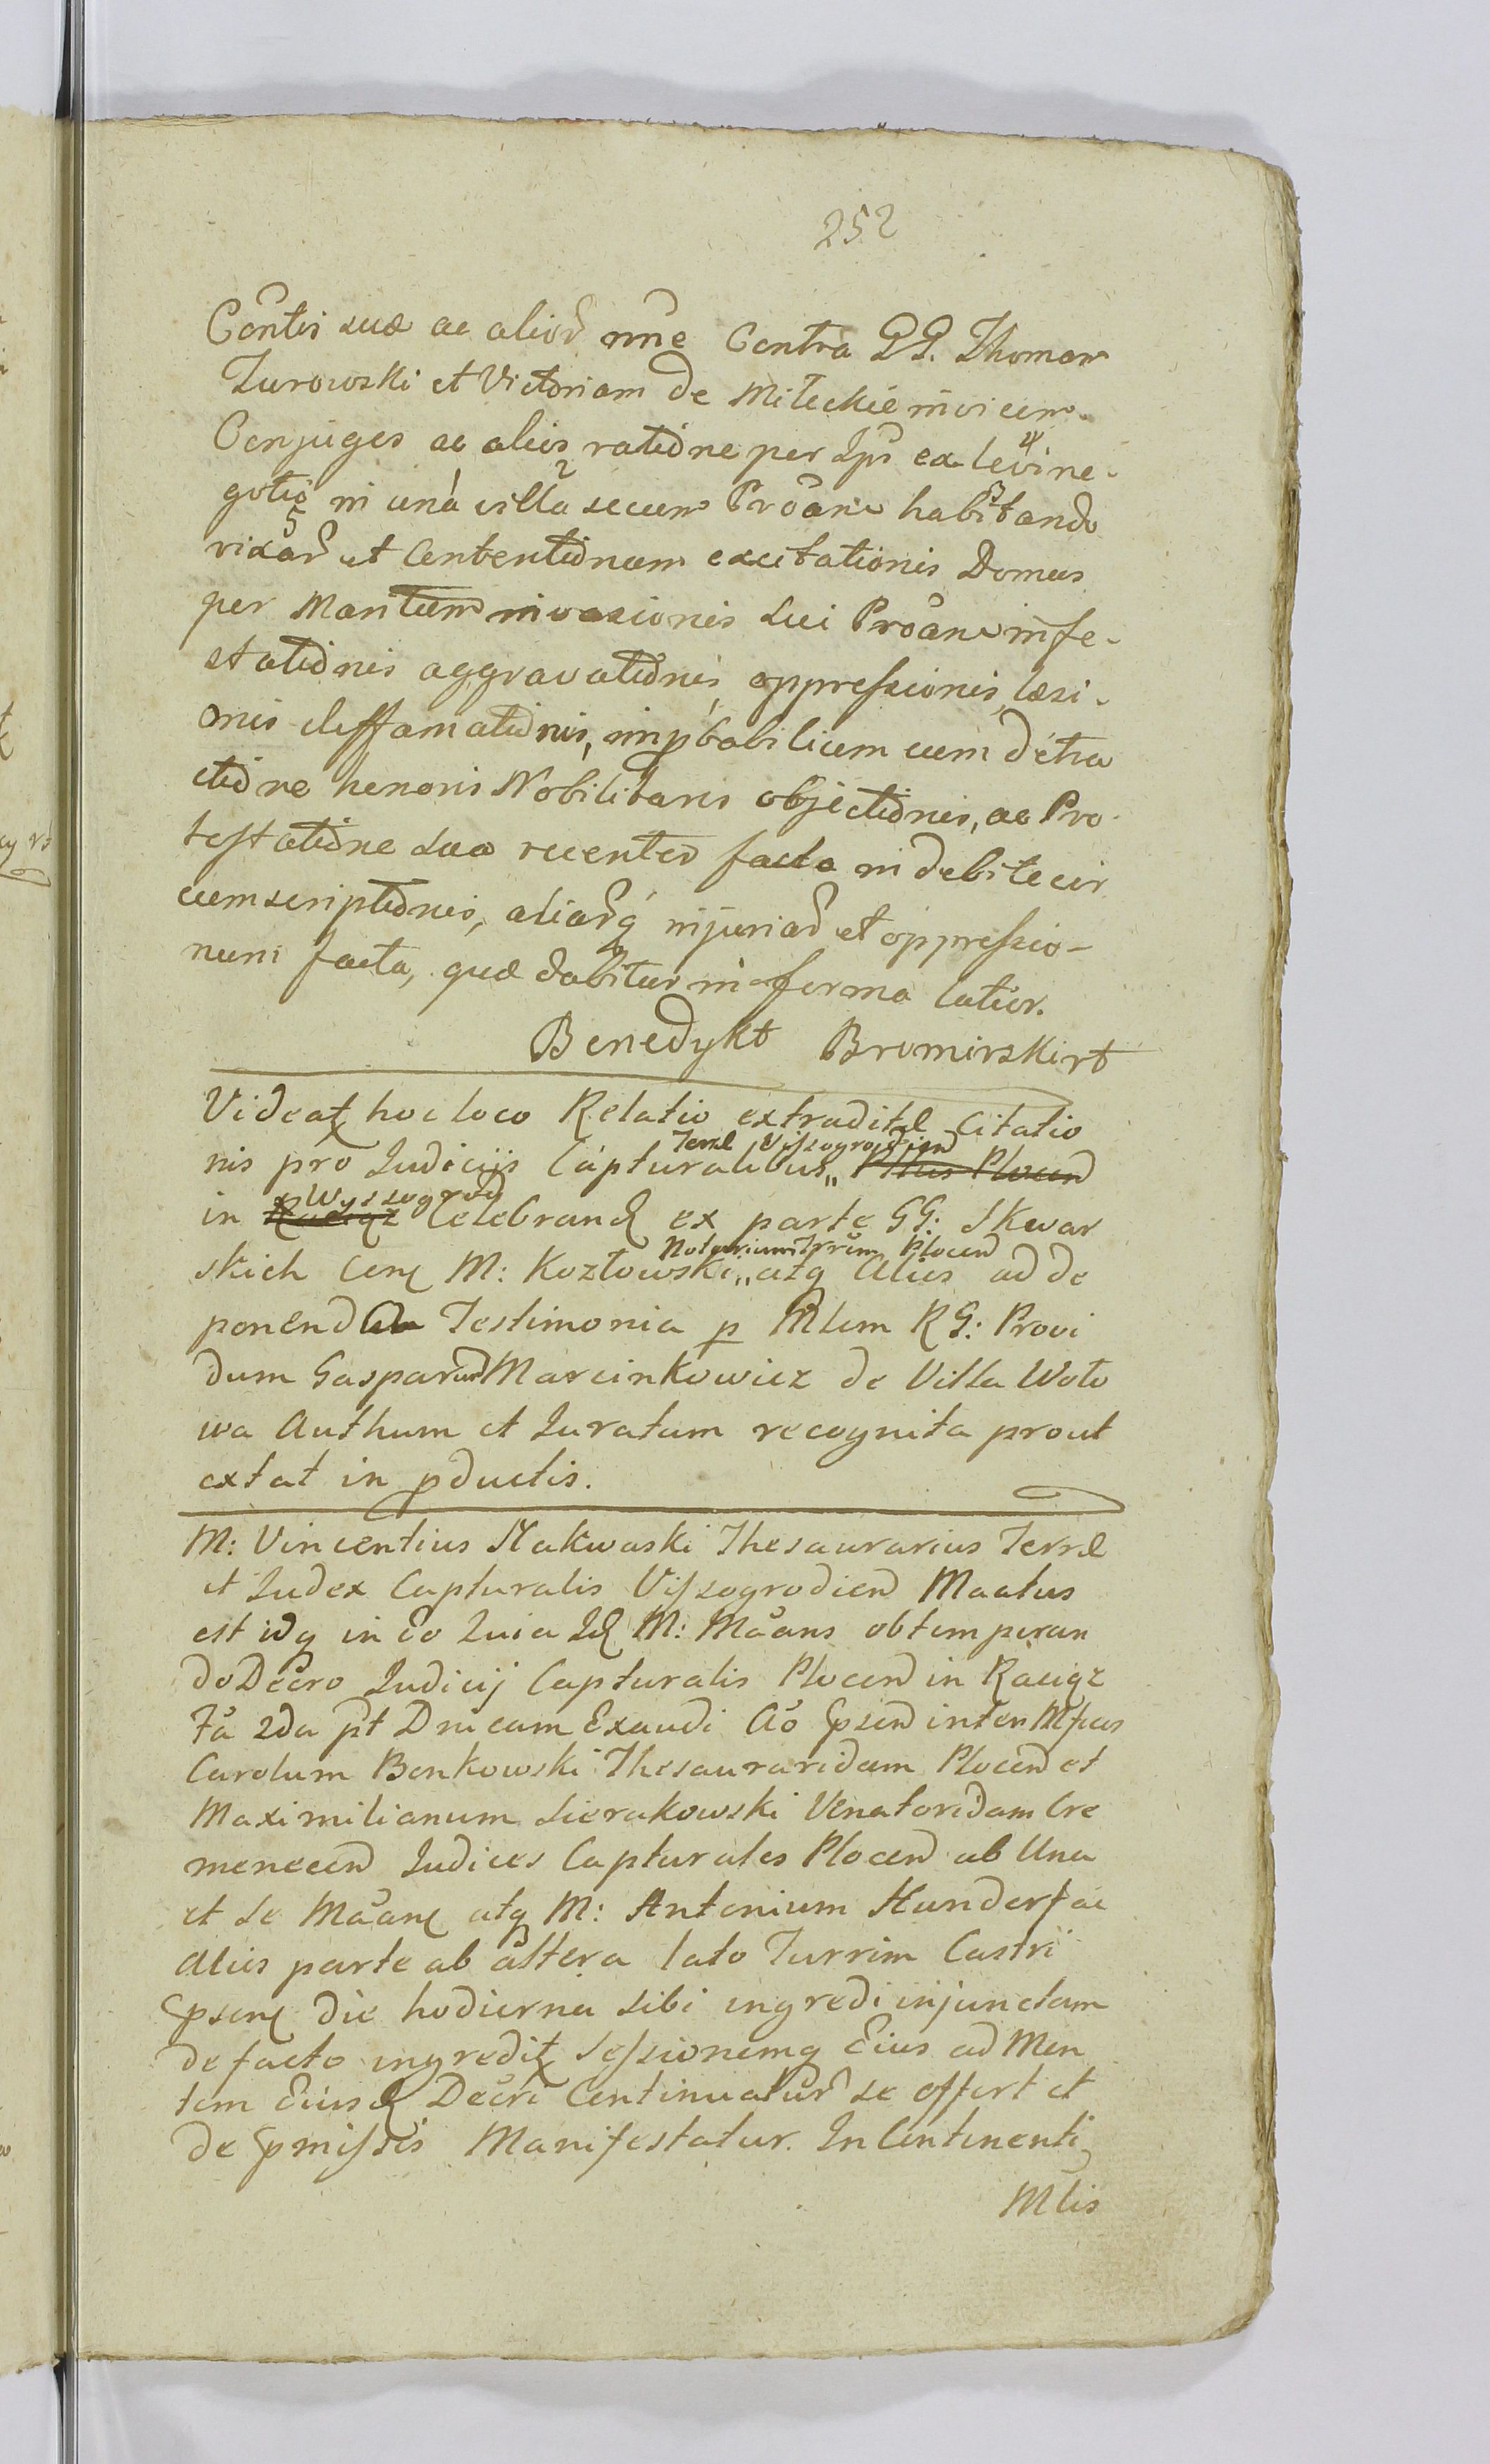 252
Contis suæ ac alior nne Contra GG. Thomam
Zurowski et Victoriam de Mileckie invicem
Conjuges ac alios ratione per Ips ex levi ne-
gotio in unâ villa secum Proane habitando
rixar et Contentionum excitationis Domus
per Maritum invasionis sui Proane infe-
stationis aggravationis, oppressionis, læsi-
onis deffamationis, improbabilium cum detra
ctione honoris Nobilitaris objectionis, ac Pro-
testatione sua recenter facta indebite cir
cumscriptionis, aliarq injuriar et oppressio-
num facta, quæ dabitur in forma latior.
Benedykt Bromirski rt
Videat hoc loco Relatio extraditæ Citatio
nis pro Judicijs Capturalibus Terræ Vissogrodien Pltus Plocen
in Raciąż Wyszogrod Celebrand ex parte GG: Skwar
skich Con M: Kozłowski Notarium Trrum Plocen atq Alios ad de
ponenda Testimonia p Mlem RG: Provi
dum Gasparum Marcinkowicz de Villa Woto
wa Authum et Juratum recognita prout
extat in pductis.
M: Vincentius Nakwaski Thesaurarius Terræ
et Judex Capturalis Vissogrodien Maatus
est idq in eo Quia Id M: Maans obtemperan
do Decro Judicij Capturalis Plocen in Raciąz
Fa 2da pt Dnicam Exaudi Ao Psen inter Mfcos
Carolum Bonkowski Thesauraridam Plocen et
Maximilianum Sierakowski Venatoridam Cre
menecen Judices Capturales Plocen ab Una
et se Maane atq M: Antonium Hunder ac
Alios parte ab altera lato Turrim Castri
Psen die hodierna sibi ingredi injunctam
de facto ingredit sessionemq Eius ad Men
tem Eiusd Decri Continuatur se offert et
de Pmissis Manifestatur. In Continenti
Mlis